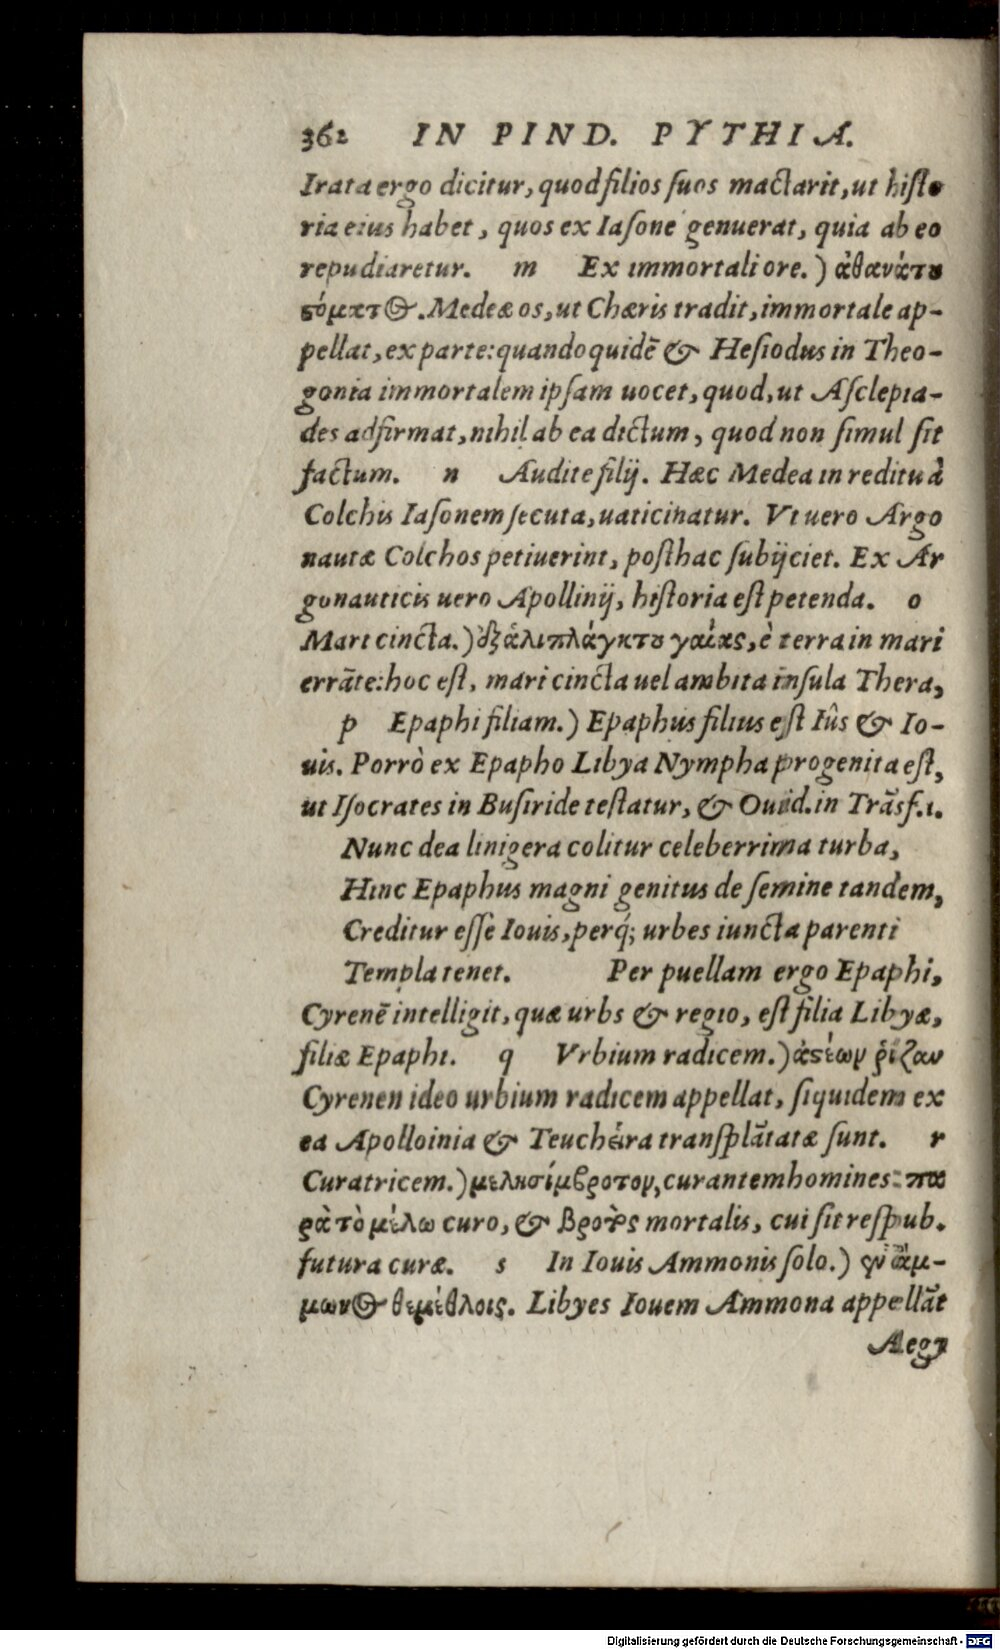 362 IN PIND. PYTHIA.
Irata ergo dicitur, quod filios ſuos mactarit, ut hiſto
ria eius habet, quos ex Iaſone genuerat, quia ab eo
repudiaretur. m Ex immortali ore.) ἀθανάτου
στόματος. Medeæ os, ut Chæris tradit, immortale ap-
pellat, ex parte: quandoquidē & Heſiodus in Theo-
gonia immortalem ipſam uocet, quod, ut Aſclepia-
des adfirmat, nihil ab ea dictum, quod non ſimul ſit
factum. n Audite filij. Hæc Medea in reditu à
Colchis Iaſonem ſecuta, uaticinatur. Vt uero Argo
nautæ Colchos petiuerint, poſthac ſubijciet. Ex Ar
gonauticis uero Apollinij, hiſtoria eſt petenda. o
Mari cincta.) ἐξ ἁλιπλάγκτου γαίας, è terra in mari
errāte: hoc eſt, mari cincta uel ambita inſula Thera,
p Epaphi filiam.) Epaphus filius eſt Iûs & Io-
uis. Porrò ex Epapho Libya Nympha progenita eſt,
ut Iſocrates in Buſiride teſtatur, & Ouid. in Trāsf. 1.
Nunc dea linigera colitur celeberrima turba,
Hinc Epaphus magni genitus de ſemine tandem,
Creditur eſſe Iouis, perq́; urbes iuncta parenti
Templa tenet. Per puellam ergo Epaphi,
Cyrenē intelligit, quæ urbs & regio, eſt filia Libyæ,
filiæ Epaphi. q Vrbium radicem.) ἀστέων ῥίζαν
Cyrenen ideo urbium radicem appellat, ſiquidem ex
ea Apolloinia & Teuchéra tranſplātatæ ſunt. r
Curatricem.) μελησίμβροτον, curantem homines: πα
ρὰ τὸ μέλω curo, & βροτὸς mortalis, cui ſit reſpub.
futura curæ. s In Iouis Ammonis ſolo.) ἐν ἄμ-
μωνος θεμέθλοις. Libyes Iouem Ammona appellāt
Aegy
Digitalisierung gefördert durch die Deutsche Forschungsgemeinschaft - DFG